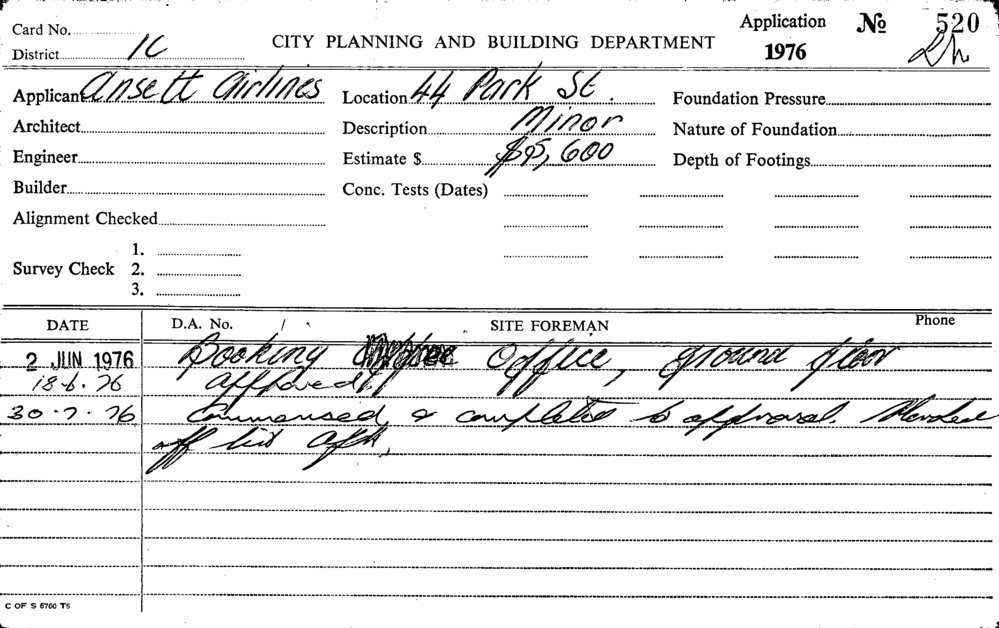 Card No.
District 1C
CITY PLANNING AND BUILDING DEPARTMENT
Application No 520
1976
Applicant Ansett Airlines
Location 44 Park St.
Foundation Pressure
Architect
Description Minor
Nature of Foundation
Engineer
Estimate $ $95,600
Depth of Footings
Builder
Conc. Tests (Dates)
Alignment Checked
Survey Check 1.
2.
3.
DATE D.A. No. SITE FOREMAN Phone
2 JUN 1976 Booking Office, ground floor
18-6-76 approved
30-7-76 Commensed & completed to approval.
off list
C OF S 6760 T6